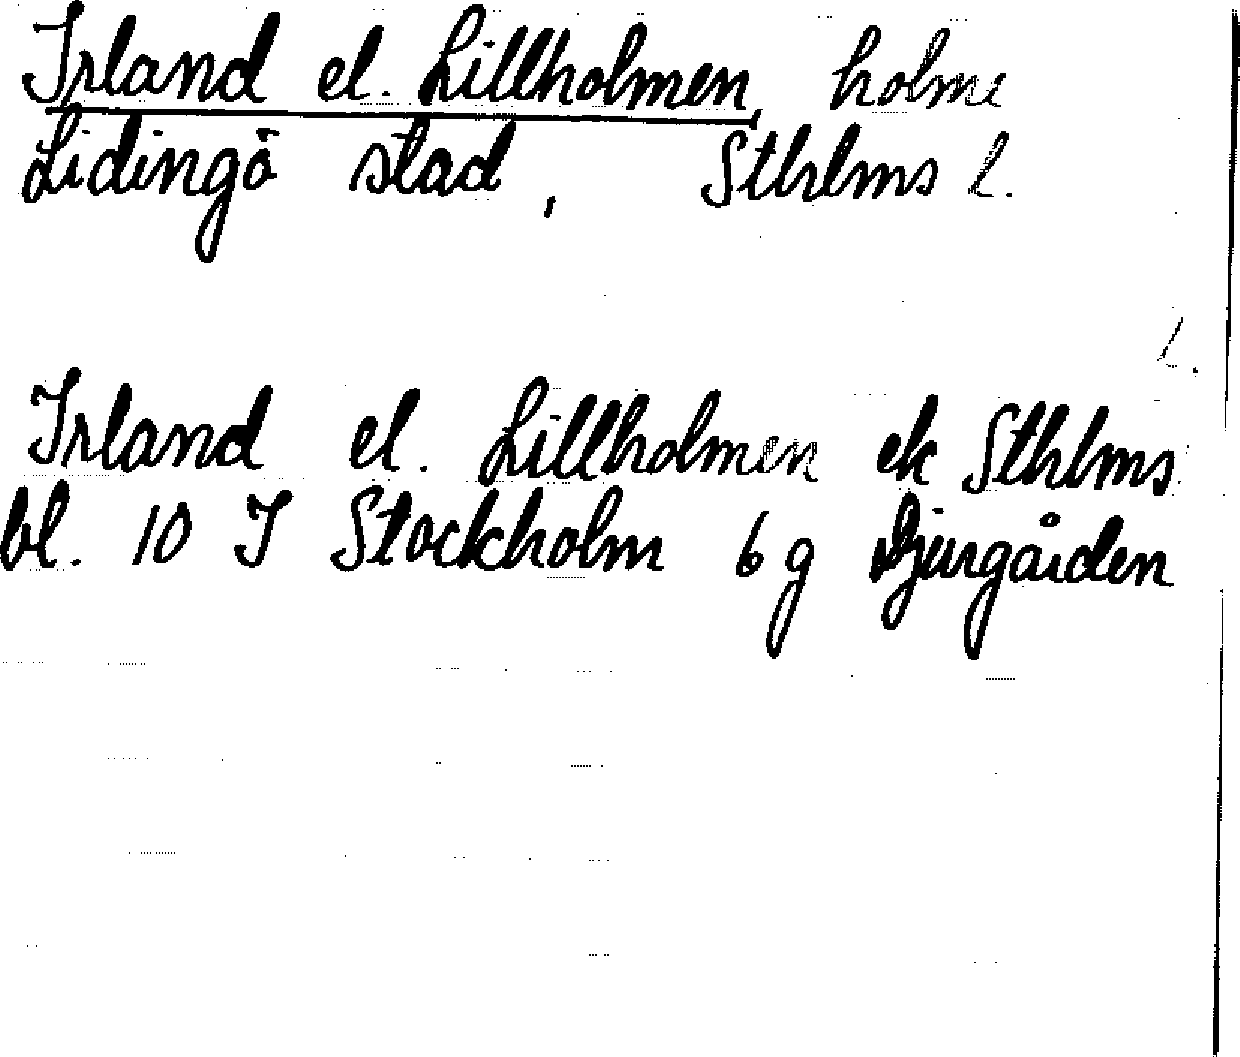 Irland el. Lillholmen, holme
Lidingö stad, Sthlms l.
l.
Irland el. Lillholmen ek Sthlms
bl. 10 I Stockholm 6 g Djurgården